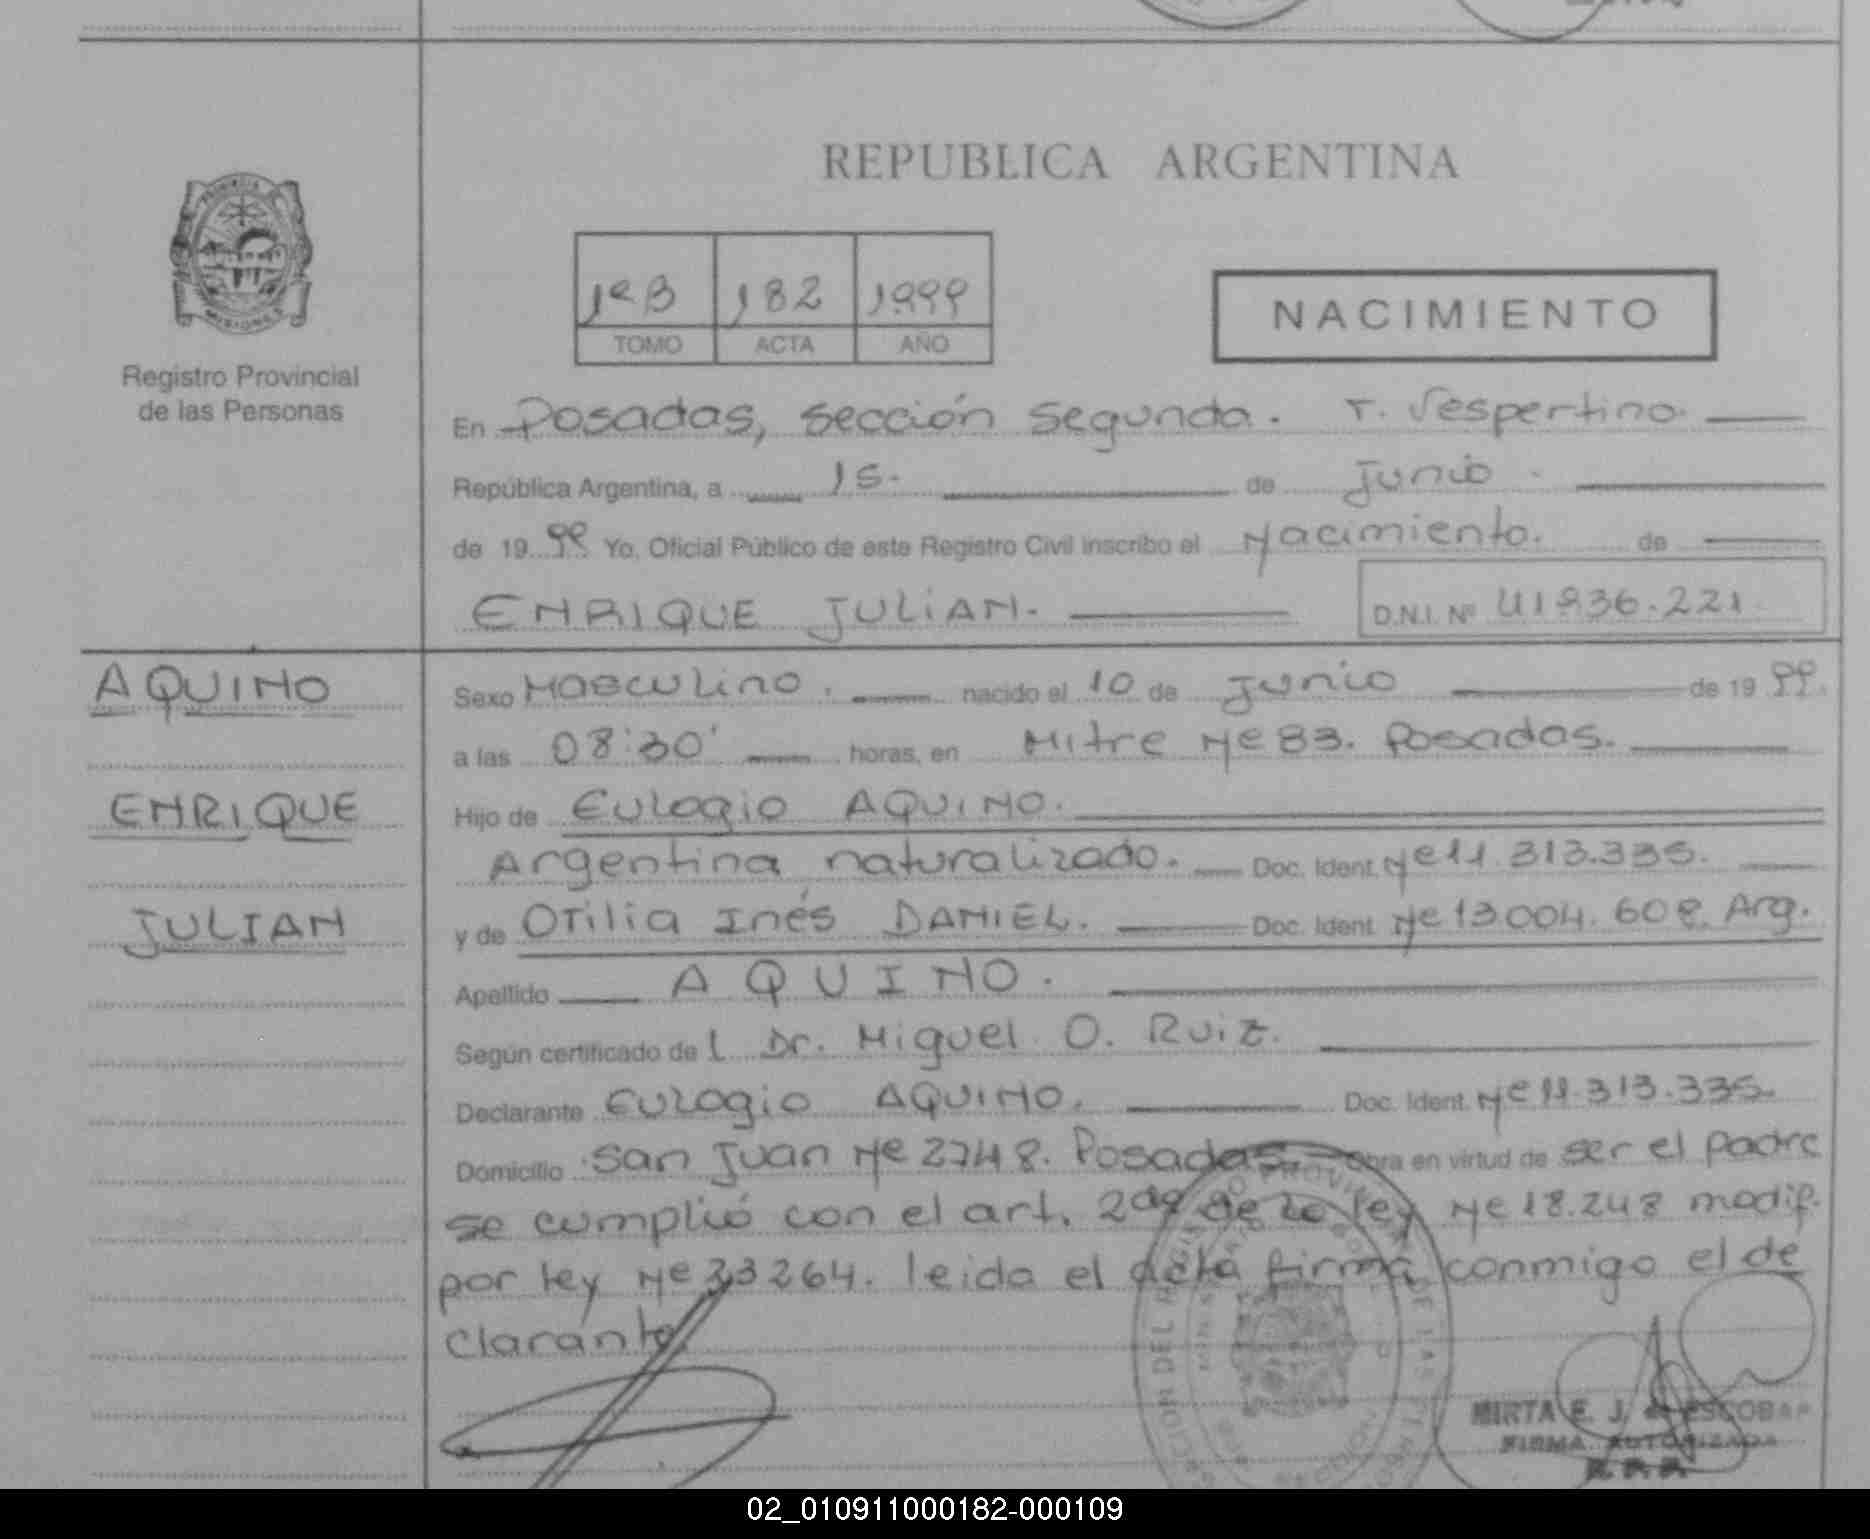 REPUBLICA ARGENTINA
PROVINCIA
MISIONES
Registro Provincial
de las Personas
1º B 182 1999
TOMO ACTA AÑO
NACIMIENTO
En Posadas, sección segunda. T. Vespertino.
República Argentina, a 15. de Junio.
de 1999 Yo, Oficial Público de este Registro Civil inscribo el Nacimiento. de
ENRIQUE JULIAN. D.N.I. Nº 41936.221
AQUINO
ENRIQUE
JULIAN
Sexo Masculino. nacido el 10 de Junio de 1999.
a las 08:30' horas, en Mitre Nº 83. Posadas.
Hijo de Eulogio AQUINO.
Argentina naturalizado. Doc. Ident. Nº 11.313.335.
y de Otilia Inés DANIEL. Doc. Ident. Nº 13.004.608. Arg.
Apellido AQUINO.
Según certificado del Dr. Miguel O. Ruiz.
Declarante Eulogio AQUINO. Doc. Ident. Nº 11.313.335.
Domicilio San Juan Nº 2748. Posadas. Obra en virtud de ser el padre
se cumplió con el art. 2do de la ley Nº 18.248 modif.
por ley Nº 23264. leida el acta firma conmigo el de
clarante.
MIRTA E. J. de ESCOBAR
FIRMA AUTORIZADA
R. P. P.
02_010911000182-000109